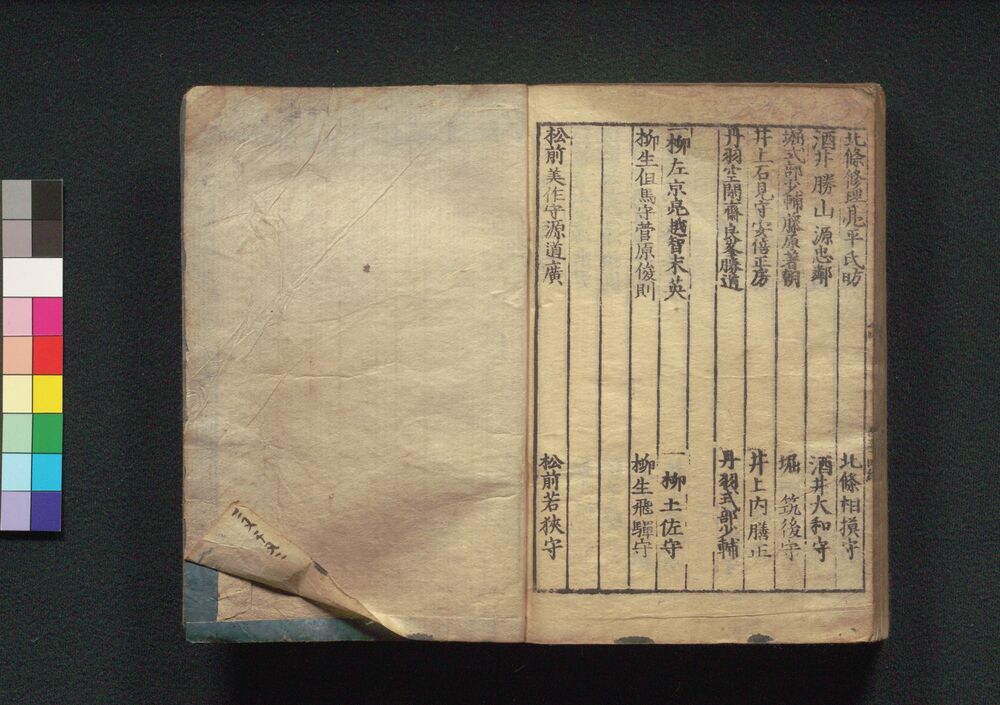 北條修理亮平氏昉　北條相摸守
酒井勝山源忠鄰　酒井大和守
堀式部少輔藤原著朝　堀筑後守
井上石見守安倍正房　井上内膳正
丹羽空閑齋良峯勝道　丹羽式部少輔
一柳左京亮越智末英　一柳土佐守
柳生但馬守菅原俊則　柳生飛驒守
松前美作守源道廣　松前若狹守